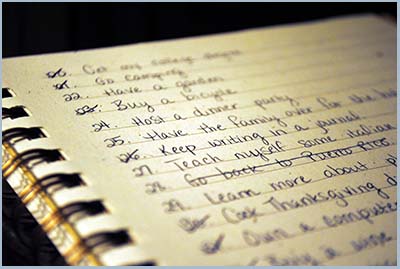 21. Go camping
22. Have a garden
23. Buy a bicycle
24. Host a dinner party
25. Have the family over for the
26. Keep writing in a journal
27. Teach myself some italian
28. Go back to Puerto Rico
29. Learn more about
Cook Thanksgiving
Own a computer
Buy a